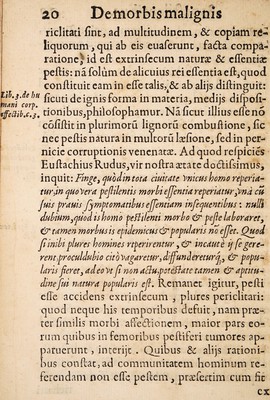 20 De morbis malignis
riclitati sint, ad multitudinem, & copiam re-
liquorum, qui ab eis euaserunt, facta compa-
ratione, id est extrinsecum naturæ & essentiæ
pestis: nã solùm de alicuius rei essentia est, quod
constituit eam in esse talis, & ab alijs distinguit:
sicuti de ignis forma in materia, medijs disposi-
tionibus, philosophamur. Nã sicut illius esse nõ
cõsistit in plurimorũ lignorũ combustione, sic
nec pestis natura in multorũ læsione, sed in per-
nicie corruptionis venenatæ. Ad quod respiciẽs
Lib. 3. de hu
mani corp.
affectib. c. 3.
Eustachius Rudus, vir nostra ætate doctissimus,
inquit: Finge, quòd in tota ciuitate vnicus homo reperia-
tur, in quo vera pestilentis morbi essentia reperiatur, vnà cũ
suis prauis symptomatibus essentiam insequentibus: nulli
dubium, quod is homo pestilenti morbo & peste laboraret,
& tamen morbus is epidemicus & popularis nõ esset. Quod
si inibi plures homines reperirentur, & incautè ij se gere-
rent, proculdubio citò vagaretur, diffundereturq;, & popu-
laris fieret, adeo vt si non actu, potestate tamen & aptitu-
dine sui natura popularis est. Remanet igitur, pesti
esse accidens extrinsecum, plures periclitari:
quod neque his temporibus defuit, nam præ-
ter similis morbi affectionem, maior pars eo-
rum quibus in femoribus pestiferi tumores ap-
paruerunt, interijt. Quibus & alijs rationi-
bus constat, ad communitatem hominum re-
ferendam non esse pestem, præsertim cum fit
ex